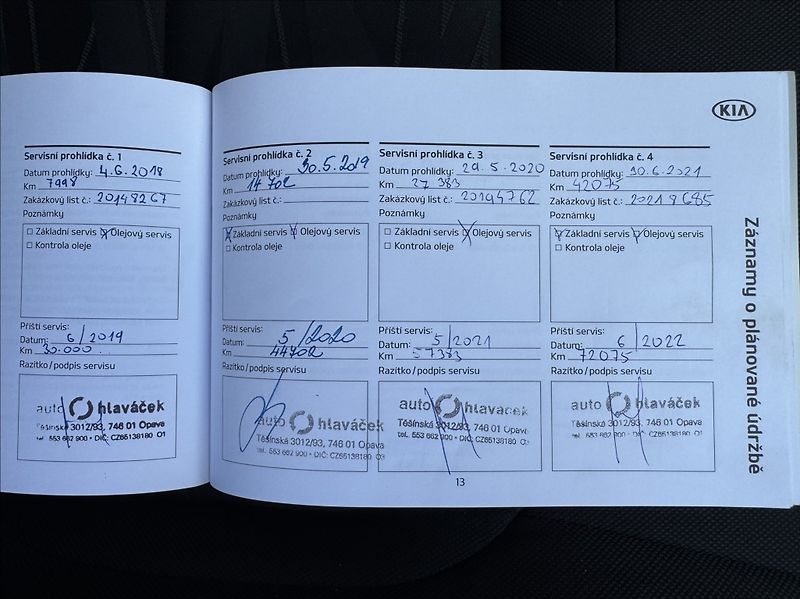 KIA
Servisní prohlídka č. 1
Datum prohlídky: 4.6.2018
Km 7998
Zakázkový list č.: 20148267
Poznámky
Základní servis Olejový servis
Kontrola oleje
Příští servis:
Datum: 6/2019
Km 30.000
Razítko/podpis servisu
auto hlaváček
Těšínská 3012/93, 746 01 Opava
tel. 553 662 900 • DIČ: CZ65138180 O1
Servisní prohlídka č. 2
Datum prohlídky: 30.5.2019
Km 14 702
Zakázkový list č.:
Poznámky
Základní servis Olejový servis
Kontrola oleje
Příští servis:
Datum: 5/2020
Km 44702
Razítko/podpis servisu
auto hlaváček
Těšínská 3012/93, 746 01 Opava
tel. 553 662 900 • DIČ: CZ65138180 O3
Servisní prohlídka č. 3
Datum prohlídky: 29.5.2020
Km 27 383
Zakázkový list č.: 20194762
Poznámky
Základní servis Olejový servis
Kontrola oleje
Příští servis:
Datum: 5/2021
Km 57383
Razítko/podpis servisu
auto hlaváček
Těšínská 3012/93, 746 01 Opava
tel. 553 662 900 • DIČ: CZ65138180 O1
Servisní prohlídka č. 4
Datum prohlídky: 10.6.2021
Km 42075
Zakázkový list č.: 20219685
Poznámky
Základní servis Olejový servis
Kontrola oleje
Příští servis:
Datum: 6/2022
Km 72075
Razítko/podpis servisu
auto hlaváček
Těšínská 3012/93, 746 01 Opava
tel. 553 662 900 • DIČ: CZ65138180 O1
Záznamy o plánované údržbě
13